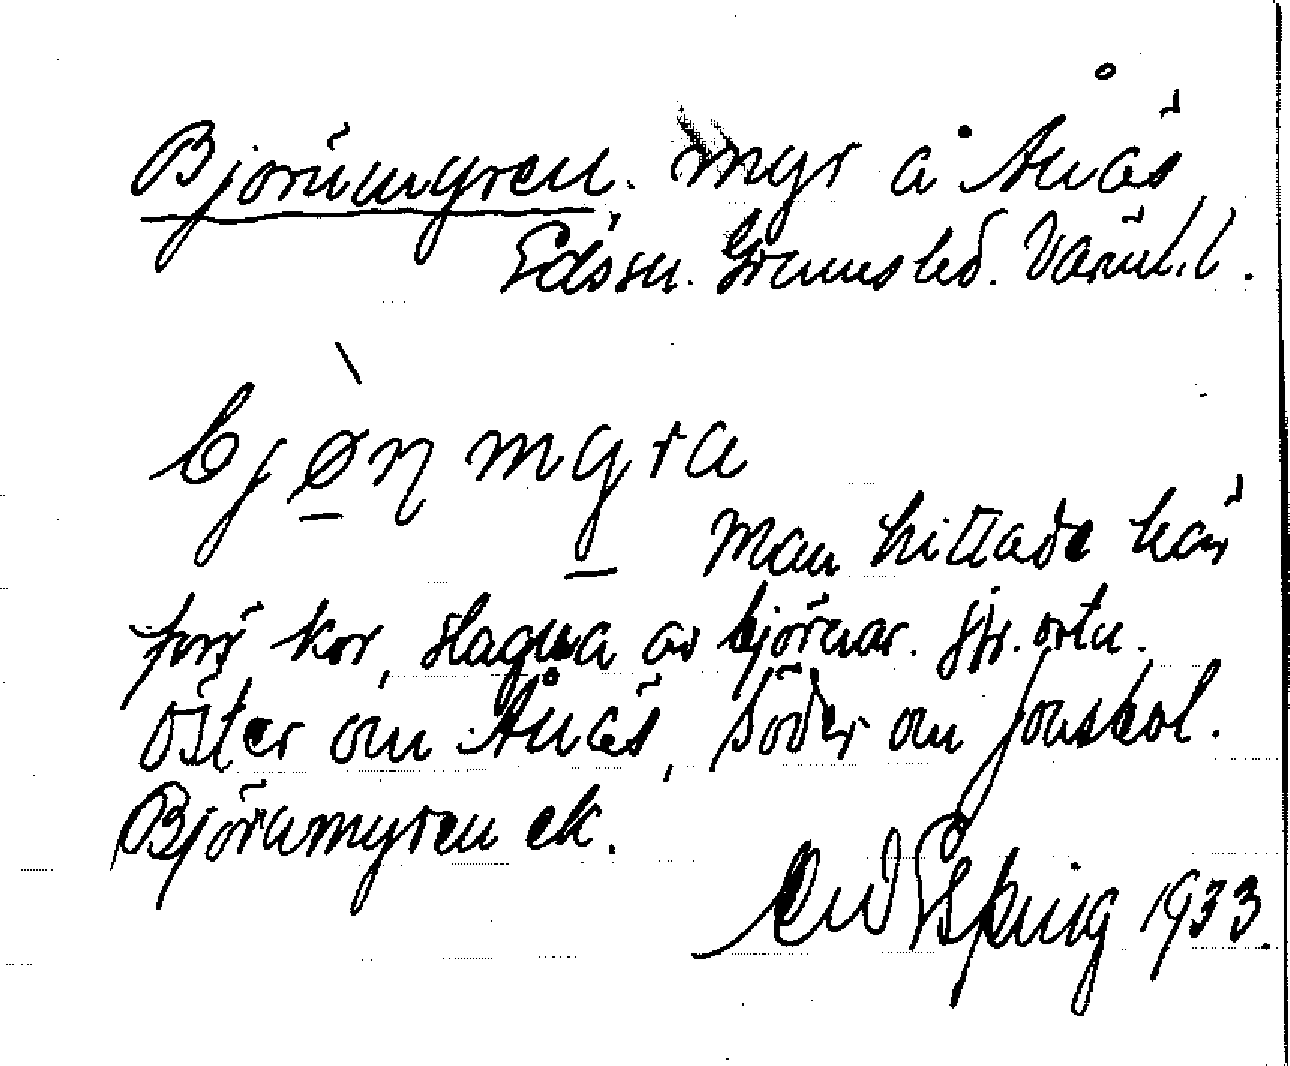 Björnmyren, myr å Anås
Edssn. Grumshd. Värml.l.
bjøn myra
Man hittade här
förr kor, slagna av björnar. jfr. ortn.
Öster om Anås, söder om Jonskol.
Björnmyren ek.
Erw Esping 1933.